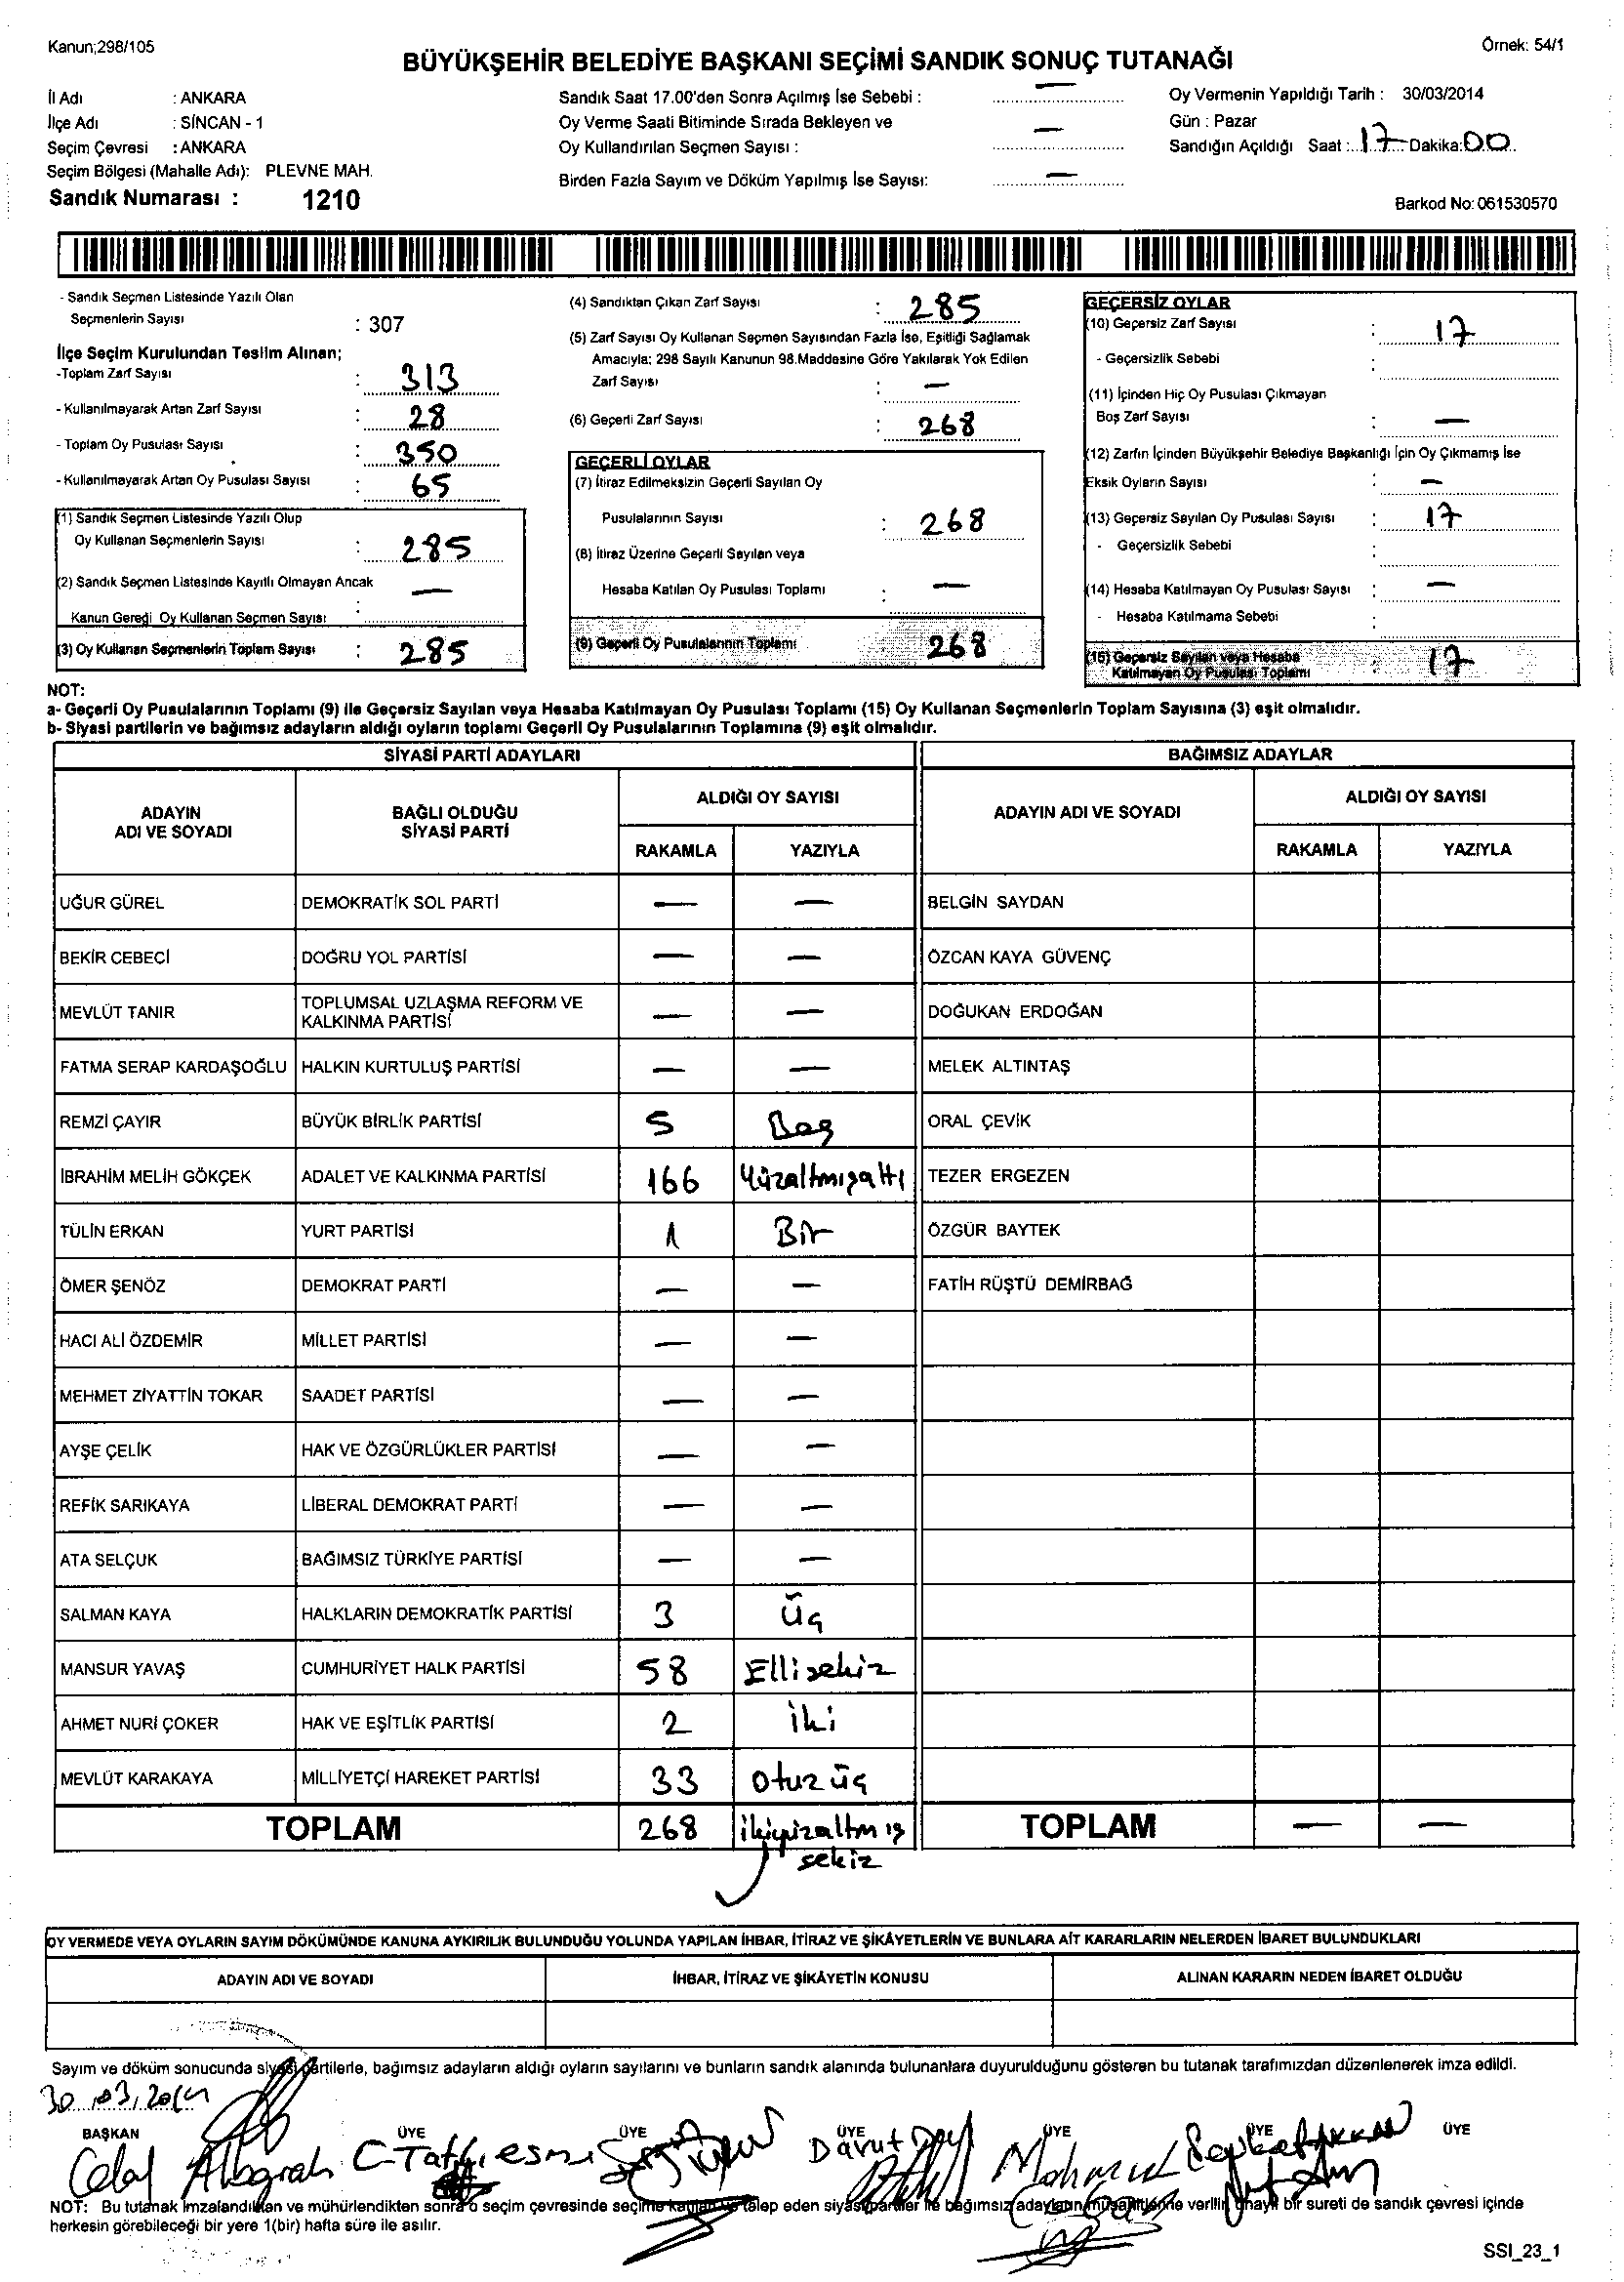 Kanun;298/105
Örnek: 54/1
BÜYÜKŞEHİR BELEDİYE BAŞKANI SEÇİMİ SANDIK SONUÇ TUTANAĞI
İl Adı : ANKARA
İlçe Adı : SİNCAN - 1
Seçim Çevresi : ANKARA
Seçim Bölgesi (Mahalle Adı): PLEVNE MAH.
Sandık Numarası : 1210
Sandık Saat 17.00'den Sonra Açılmış İse Sebebi : —
Oy Verme Saati Bitiminde Sırada Bekleyen ve
Oy Kullandırılan Seçmen Sayısı : —
Birden Fazla Sayım ve Döküm Yapılmış İse Sayısı: —
Oy Vermenin Yapıldığı Tarih : 30/03/2014
Gün : Pazar
Sandığın Açıldığı Saat : 17 Dakika: 00
Barkod No: 061530570
- Sandık Seçmen Listesinde Yazılı Olan
Seçmenlerin Sayısı : 307
İlçe Seçim Kurulundan Teslim Alınan;
-Toplam Zarf Sayısı : 313
- Kullanılmayarak Artan Zarf Sayısı : 28
- Toplam Oy Pusulası Sayısı : 350
- Kullanılmayarak Artan Oy Pusulası Sayısı : 65
(1) Sandık Seçmen Listesinde Yazılı Olup
Oy Kullanan Seçmenlerin Sayısı : 285
(2) Sandık Seçmen Listesinde Kayıtlı Olmayan Ancak
Kanun Gereği Oy Kullanan Seçmen Sayısı : —
(3) Oy Kullanan Seçmenlerin Toplam Sayısı : 285
(4) Sandıktan Çıkan Zarf Sayısı : 285
(5) Zarf Sayısı Oy Kullanan Seçmen Sayısından Fazla İse, Eşitliği Sağlamak
Amacıyla; 298 Sayılı Kanunun 98.Maddesine Göre Yakılarak Yok Edilen
Zarf Sayısı : —
(6) Geçerli Zarf Sayısı : 268
GEÇERLİ OYLAR
(7) İtiraz Edilmeksizin Geçerli Sayılan Oy
Pusulalarının Sayısı : 268
(8) İtiraz Üzerine Geçerli Sayılan veya
Hesaba Katılan Oy Pusulası Toplamı : —
(9) Geçerli Oy Pusulalarının Toplamı 268
GEÇERSİZ OYLAR
(10) Geçersiz Zarf Sayısı : 17
- Geçersizlik Sebebi :
(11) İçinden Hiç Oy Pusulası Çıkmayan
Boş Zarf Sayısı : —
(12) Zarfın İçinden Büyükşehir Belediye Başkanlığı İçin Oy Çıkmamış İse
Eksik Oyların Sayısı : —
(13) Geçersiz Sayılan Oy Pusulası Sayısı : 17
- Geçersizlik Sebebi :
(14) Hesaba Katılmayan Oy Pusulası Sayısı : —
- Hesaba Katılmama Sebebi :
(15) Geçersiz Sayılan veya Hesaba
Katılmayan Oy Pusulası Toplamı : 17
NOT:
a- Geçerli Oy Pusulalarının Toplamı (9) ile Geçersiz Sayılan veya Hesaba Katılmayan Oy Pusulası Toplamı (15) Oy Kullanan Seçmenlerin Toplam Sayısına (3) eşit olmalıdır.
b- Siyasi partilerin ve bağımsız adayların aldığı oyların toplamı Geçerli Oy Pusulalarının Toplamına (9) eşit olmalıdır.
SİYASİ PARTİ ADAYLARI BAĞIMSIZ ADAYLAR
ADAYIN ADI VE SOYADI BAĞLI OLDUĞU SİYASİ PARTİ ALDIĞI OY SAYISI ADAYIN ADI VE SOYADI ALDIĞI OY SAYISI
RAKAMLA YAZIYLA RAKAMLA YAZIYLA
UĞUR GÜREL DEMOKRATİK SOL PARTİ — — BELGİN SAYDAN
BEKİR CEBECİ DOĞRU YOL PARTİSİ — — ÖZCAN KAYA GÜVENÇ
MEVLÜT TANIR TOPLUMSAL UZLAŞMA REFORM VE KALKINMA PARTİSİ — — DOĞUKAN ERDOĞAN
FATMA SERAP KARDAŞOĞLU HALKIN KURTULUŞ PARTİSİ — — MELEK ALTINTAŞ
REMZİ ÇAYIR BÜYÜK BİRLİK PARTİSİ 5 Beş ORAL ÇEVİK
İBRAHİM MELİH GÖKÇEK ADALET VE KALKINMA PARTİSİ 166 Yüzaltmışaltı TEZER ERGEZEN
TÜLİN ERKAN YURT PARTİSİ 1 Bir ÖZGÜR BAYTEK
ÖMER ŞENÖZ DEMOKRAT PARTİ — — FATİH RÜŞTÜ DEMİRBAĞ
HACI ALİ ÖZDEMİR MİLLET PARTİSİ — —
MEHMET ZİYATTİN TOKAR SAADET PARTİSİ — —
AYŞE ÇELİK HAK VE ÖZGÜRLÜKLER PARTİSİ — —
REFİK SARIKAYA LİBERAL DEMOKRAT PARTİ — —
ATA SELÇUK BAĞIMSIZ TÜRKİYE PARTİSİ — —
SALMAN KAYA HALKLARIN DEMOKRATİK PARTİSİ 3 Üç
MANSUR YAVAŞ CUMHURİYET HALK PARTİSİ 58 Ellisekiz
AHMET NURİ ÇOKER HAK VE EŞİTLİK PARTİSİ 2 İki
MEVLÜT KARAKAYA MİLLİYETÇİ HAREKET PARTİSİ 33 Otuz üç
TOPLAM 268 ikiyüzaltmış TOPLAM — —
sekiz
OY VERMEDE VEYA OYLARIN SAYIM DÖKÜMÜNDE KANUNA AYKIRILIK BULUNDUĞU YOLUNDA YAPILAN İHBAR, İTİRAZ VE ŞİKÂYETLERİN VE BUNLARA AİT KARARLARIN NELERDEN İBARET BULUNDUKLARI
ADAYIN ADI VE SOYADI İHBAR, İTİRAZ VE ŞİKÂYETİN KONUSU ALINAN KARARIN NEDEN İBARET OLDUĞU
Sayım ve döküm sonucunda siyasi partilerle, bağımsız adayların aldığı oyların sayılarını ve bunların sandık alanında bulunanlara duyurulduğunu gösteren bu tutanak tarafımızdan düzenlenerek imza edildi.
30.03.2014
BAŞKAN ÜYE ÜYE ÜYE ÜYE ÜYE ÜYE
Celal Davut Mahmut
NOT: Bu tutanak İmzalandıktan ve mühürlendikten sonra o seçim çevresinde seçime katılan ve talep eden siyasi partiler ile bağımsız adayların müşahitlerine verilir, onaylı bir sureti de sandık çevresi içinde
herkesin görebileceği bir yere 1(bir) hafta süre ile asılır.
SSI_23_1